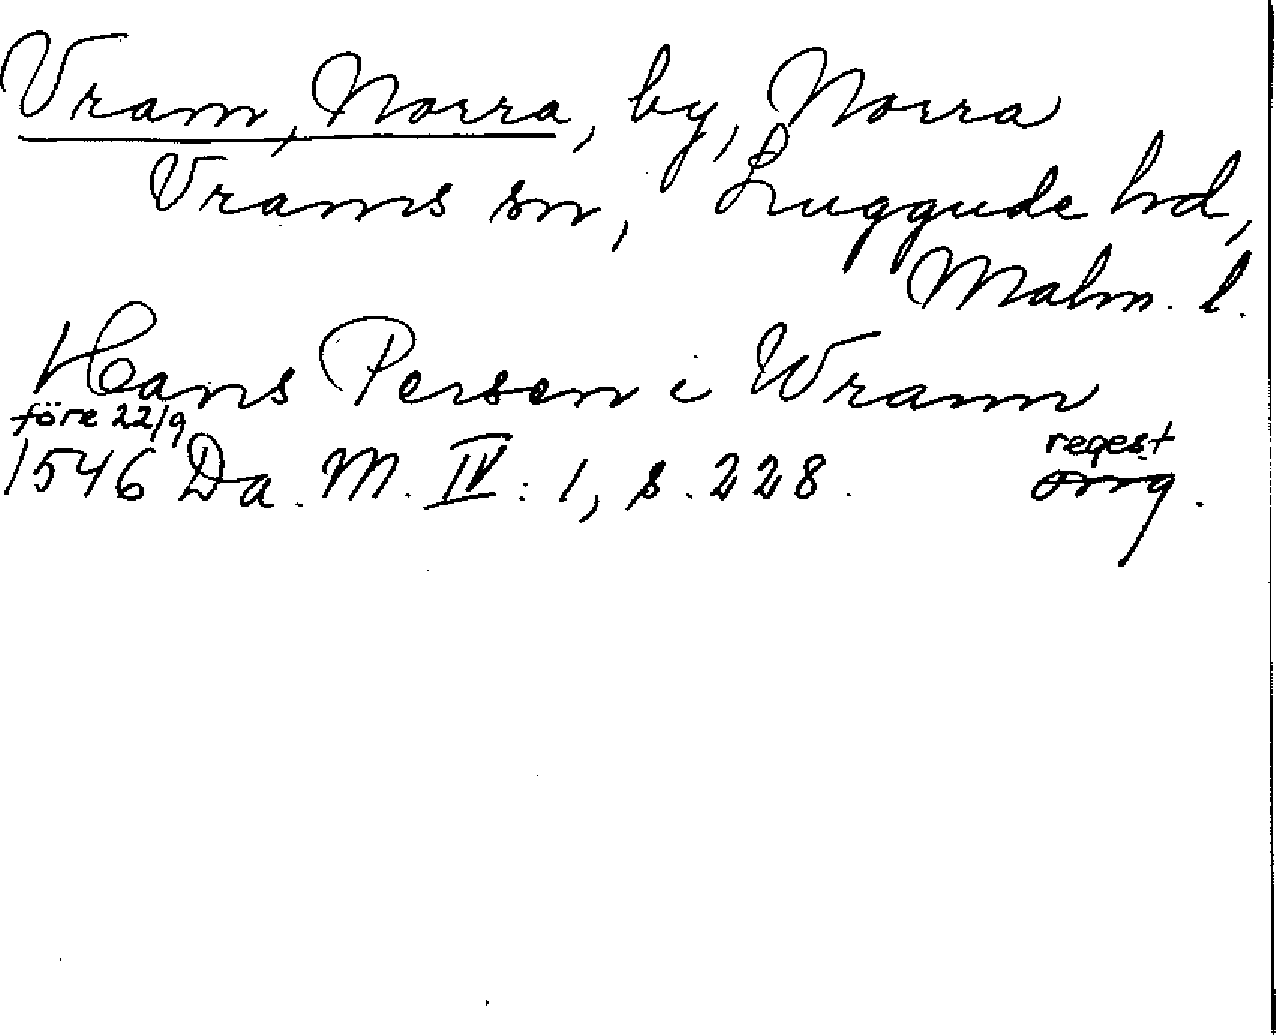 Vram, Norra, by, Norra
Vrams sn, Luggude hd,
Malm. l.
Hans Persen i Wram
före 22/9
1546 Da. M. IV: 1, s. 228.
regest